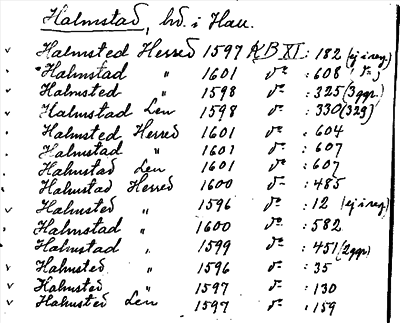 Halmstad, hd. i Hall.
Halmsted Herred 1597 KB XI : 182 (ej i reg.)
Halmstad " 1601 do : 608
Halmsted " 1598 do : 325 (3 ggr.)
Halmstad Len 1598 do : 330 (329)
Halmsted Herred 1601 do : 604
Halmstad " 1601 do : 607
Halmstad Len 1601 do : 607
Halmstad Herred 1600 do : 485
Halmsted " 1596 do : 12 (ej i reg.)
Halmstad " 1600 do : 582
Halmstad " 1599 do : 451 (2 ggr.)
Halmsted " 1596 do : 35
Halmsted " 1597 do : 130
Halmsted Len 1597 do : 159